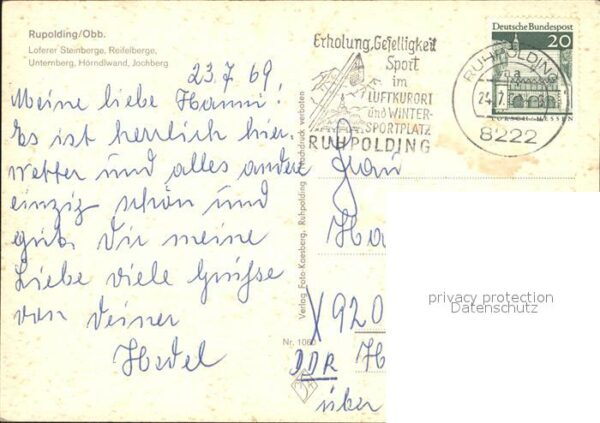 Rupolding/Obb.
Loferer Steinberge, Reifelberge,
Unternberg, Hörndlwand, Jochberg
23.7.69.
Meine liebe Hanni!
Es ist herrlich hier
Wetter und alles andere
einzig schön und
gut. Dir meine
Liebe viele Grüsse
von Deiner
Hedel
Verlag Foto-Kaesberg, Ruhpolding Nachdruck verboten
Nr. 1060
Erholung, Geselligkeit
Sport
im
LUFTKURORT
und WINTER-
SPORTPLATZ
RUHPOLDING
RUHPOLDING
24.7.
8222
Deutsche Bundespost
20
LORSCH/HESSEN
Frau
Ha
X 920
DDR H
über
privacy protection
Datenschutz